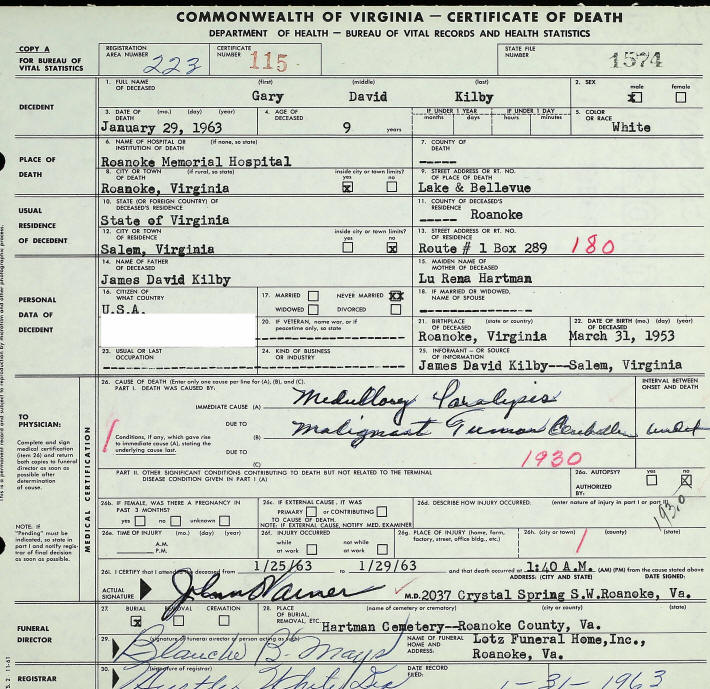 COMMONWEALTH OF VIRGINIA — CERTIFICATE OF DEATH
DEPARTMENT OF HEALTH — BUREAU OF VITAL RECORDS AND HEALTH STATISTICS
COPY A
FOR BUREAU OF VITAL STATISTICS
REGISTRATION AREA NUMBER 223
CERTIFICATE NUMBER 115
STATE FILE NUMBER 1574
DECEDENT
1. FULL NAME OF DECEASED (first) (middle) (last)
Gary David Kilby
2. SEX male X female
3. DATE OF DEATH (mo.) (day) (year)
January 29, 1963
4. AGE OF DECEASED 9 years
IF UNDER 1 YEAR months days
IF UNDER 1 DAY hours minutes
5. COLOR OR RACE
White
PLACE OF DEATH
6. NAME OF HOSPITAL OR INSTITUTION OF DEATH (if none, so state)
Roanoke Memorial Hospital
7. COUNTY OF DEATH -----
8. CITY OR TOWN OF DEATH (if rural, so state)
Roanoke, Virginia
inside city or town limits? yes X no
9. STREET ADDRESS OR RT. NO. OF PLACE OF DEATH
Lake & Bellevue
USUAL RESIDENCE OF DECEDENT
10. STATE (OR FOREIGN COUNTRY) OF DECEASED'S RESIDENCE
State of Virginia
11. COUNTY OF DECEASED'S RESIDENCE
----- Roanoke
12. CITY OR TOWN OF RESIDENCE
Salem, Virginia
inside city or town limits? yes no X
13. STREET ADDRESS OR RT. NO. OF RESIDENCE
Route # 1 Box 289 180
PERSONAL DATA OF DECEDENT
14. NAME OF FATHER OF DECEASED
James David Kilby
15. MAIDEN NAME OF MOTHER OF DECEASED
Lu Rena Hartman
16. CITIZEN OF WHAT COUNTRY
U.S.A.
17. MARRIED NEVER MARRIED XX
WIDOWED DIVORCED
18. IF MARRIED OR WIDOWED, NAME OF SPOUSE
20. IF VETERAN, name war, or if peacetime only, so state
21. BIRTHPLACE (state or country) OF DECEASED
Roanoke, Virginia
22. DATE OF BIRTH (mo.) (day) (year) OF DECEASED
March 31, 1953
23. USUAL OR LAST OCCUPATION
24. KIND OF BUSINESS OR INDUSTRY
25. INFORMANT - OR SOURCE OF INFORMATION
James David Kilby---Salem, Virginia
TO PHYSICIAN:
Complete and sign medical certification (item 26) and return both copies to funeral director as soon as possible after determination of cause.
NOTE: IF "Pending" must be indicated, so state in part I and notify registrar of final decision as soon as possible.
MEDICAL CERTIFICATION
26. CAUSE OF DEATH (Enter only one cause per line for (A), (B), and (C).
PART I. DEATH WAS CAUSED BY:
INTERVAL BETWEEN ONSET AND DEATH
IMMEDIATE CAUSE (A) Medullary Paralysis
Conditions, if any, which gave rise to immediate cause (A), stating the underlying cause last.
DUE TO (B) Malignant Tumor
DUE TO (C) 1930
PART II. OTHER SIGNIFICANT CONDITIONS CONTRIBUTING TO DEATH BUT NOT RELATED TO THE TERMINAL DISEASE CONDITION GIVEN IN PART I (A)
26a. AUTOPSY? yes no X
AUTHORIZED BY:
193.0
26b. IF FEMALE, WAS THERE A PREGNANCY IN PAST 3 MONTHS?
yes no unknown
26c. IF EXTERNAL CAUSE, IT WAS
PRIMARY or CONTRIBUTING
TO CAUSE OF DEATH.
NOTE: IF EXTERNAL CAUSE, NOTIFY MED. EXAMINER
26d. DESCRIBE HOW INJURY OCCURRED. (enter nature of injury in part I or part II)
26e. TIME OF INJURY (mo.) (day) (year)
A.M.
P.M.
26f. INJURY OCCURRED
while at work not while at work
26g. PLACE OF INJURY (home, farm, factory, street, office bldg., etc.)
26h. (city or town) (county) (state)
26i. I CERTIFY that I attended the deceased from 1/25/63 to 1/29/63 and that death occurred at 1:40 A.M. (AM) (PM) from the cause stated above
ADDRESS: (CITY AND STATE) DATE SIGNED:
ACTUAL SIGNATURE M.D. 2037 Crystal Spring S.W.Roanoke, Va.
FUNERAL DIRECTOR
27. BURIAL X REMOVAL CREMATION
28. PLACE OF BURIAL, REMOVAL, ETC. (name of cemetery or crematory) (city or county) (state)
Hartman Cemetery--Roanoke County, Va.
29. (signature of funeral director or person acting as such)
Blanche B. Mays
NAME OF FUNERAL HOME AND ADDRESS:
Lotz Funeral Home,Inc.,
Roanoke, Va.
REGISTRAR
30. (signature of registrar)
DATE RECORD FILED: 1-31-1963